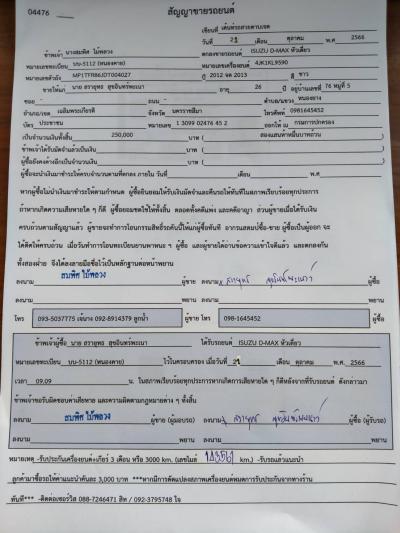 04476 สัญญาขายรถยนต์
เขียนที่ เต็นท์พระสวดานเขต
วันที่ 21 เดือน ตุลาคม พ.ศ. 2566
ข้าพเจ้า นางสมพิศ ไม้พลวง ตกลงขายรถยนต์ ISUZU D-MAX หัวเดี่ยว
หมายเลขทะเบียน บบ-5112 (หนองคาย) หมายเลขเครื่องยนต์ 4JK1KL9590
หมายเลขตัวถัง MP1TFR86JDT004027 ปี 2012 จด 2013 สี ขาว
ขายให้แก่ นาย สรายุทธ สุขอินทร์พะเนา อายุ 26 ปี อยู่บ้านเลขที่ 76 หมู่ที่ 5
ซอย - ถนน - ตำบล/แขวง หนองยาง
อำเภอ/เขต เฉลิมพระเกียรติ จังหวัด นครราชสีมา โทรศัพท์ 0981645452
บัตร ประชาชน หมายเลข 1 3099 02476 45 2 ออกให้โดย กรมการปกครอง
เป็นจำนวนเงินทั้งสิ้น 250,000 บาท ( สองแสนห้าหมื่นบาทถ้วน )
ข้าพเจ้าได้รับมัดจำแล้วเป็นเงิน บาท ( )
ผู้ซื้อยังคงค้างอีกเป็นจำนวนเงิน บาท ( )
ผู้ซื้อจะนำเงินมาชำระให้ครบจำนวนตามที่ตกลง ภายใน วันที่ เดือน พ.ศ.
หากผู้ซื้อไม่นำเงินมาชำระให้ตามกำหนด ผู้ซื้อยินยอมให้ริบเงินมัดจำและคืนรถให้ทันทีในสภาพเรียบร้อยทุกประการ
ถ้าหากเกิดความเสียหายใด ๆ ก็ดี ผู้ซื้อยอมชดใช้ให้ทั้งสิ้น ตลอดทั้งคดีแพ่ง และคดีอาญา ส่วนผู้ขายเมื่อได้รับเงิน
ครบถ้วนตามสัญญาแล้ว ผู้ขายจะทำการโอนกรรมสิทธิ์รถคันนี้ให้แก่ผู้ซื้อทันที อากรแสตมป์ซื้อ-ขาย ผู้ซื้อเป็นผู้ออก จะ
ได้ติดให้ครบถ้วน เมื่อวันทำการโอนทะเบียนยานพาหนะ ๆ ผู้ซื้อ และผู้ขายได้อ่านข้อความเข้าใจดีแล้ว และตกลงกัน
ทั้งสองฝ่าย จึงได้ลงลายมือชื่อไว้เป็นหลักฐานต่อหน้าพยาน
ลงนาม สมพิศ ไม้พลวง ผู้ขาย ลงนาม สรายุทธ สุขอินทร์พะเนา ผู้ซื้อ
ลงนาม พยาน ลงนาม พยาน
โทร 093-5037775 เจ้นาง 092-8914379 ลูกน้ำ ผู้ขาย โทร 098-1645452 ผู้ซื้อ
ข้าพเจ้าผู้ซื้อ นาย สรายุทธ สุขอินทร์พะเนา ได้รับรถยนต์ ISUZU D-MAX หัวเดี่ยว
หมายเลขทะเบียน บบ-5112 (หนองคาย) ไว้ในครอบครอง เมื่อวันที่ 21 เดือน ตุลาคม พ.ศ. 2566
เวลา 09.09 น. ในสภาพเรียบร้อยทุกประการหากเกิดการเสียหายใด ๆ ก็ดีหลังจากที่รับรถยนต์ ดังกล่าวมา
ข้าพเจ้าขอรับผิดชอบค่าเสียหาย และความผิดตามกฎหมายต่าง ๆ ทั้งสิ้น
ลงนาม สมพิศ ไม้พลวง ผู้ขาย (ผู้มอบรถ) ลงนาม สรายุทธ สุขอินทร์พะเนา ผู้ซื้อ (ผู้รับรถ)
ลงนาม พยาน ลงนาม พยาน
หมายเหตุ -รับประกันเครื่องยนต์+เกียร์ 3 เดือน หรือ 3000 km. (เลขไมล์ km.) -รับรถแล้วแนะนำ
ลูกค้ามาซื้อรถให้ค่าแนะนำคันละ 3,000 บาท ***หากมีการดัดแปลงสภาพเครื่องยนต์หมดการรับประกันจากทางร้าน
ทันที*** -ติดต่อเซอร์วิส 088-7246471 สิท / 092-3795748 ใจ